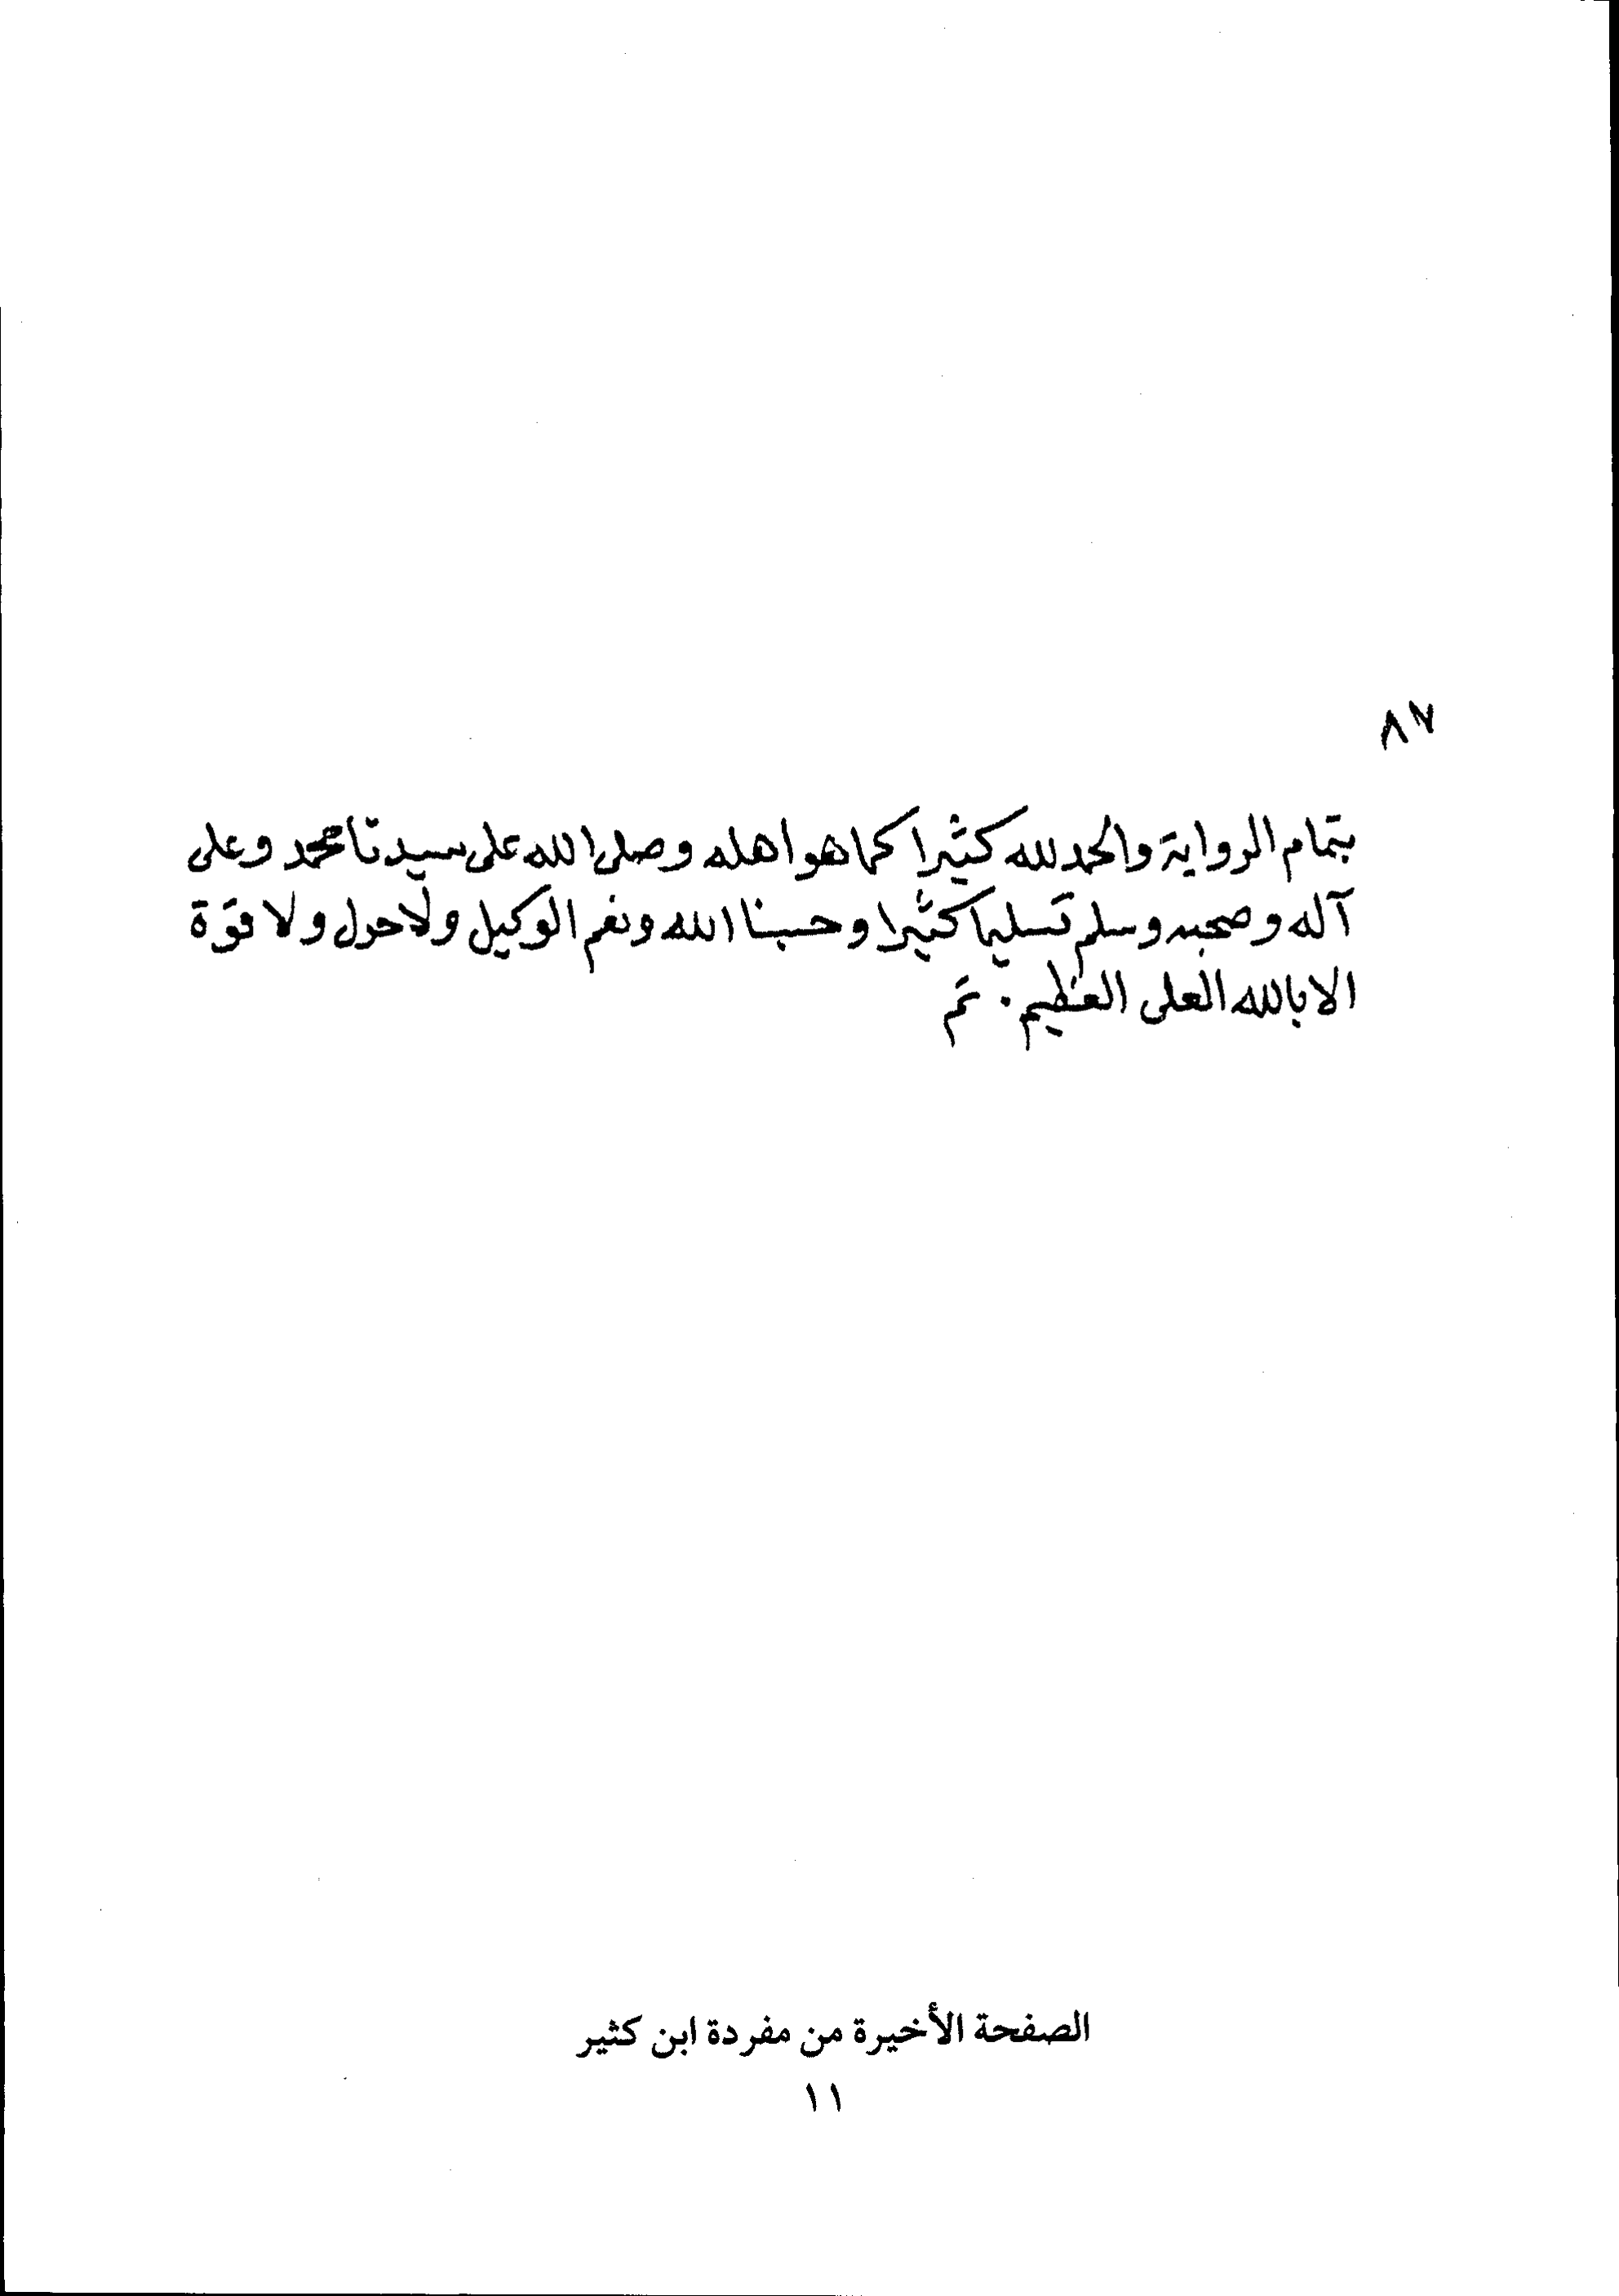 ٨٧
بتمام الرواية والحمد لله كثيرا كما هو اهله وصلى الله على سيدنا محمد وعلى
آله وصحبه وسلم تسليما كثيرا وحسبنا الله ونعم الوكيل ولا حول ولا قوة
الا بالله العلى العظيم . تم
الصفحة الأخيرة من مفردة ابن كثير
١١